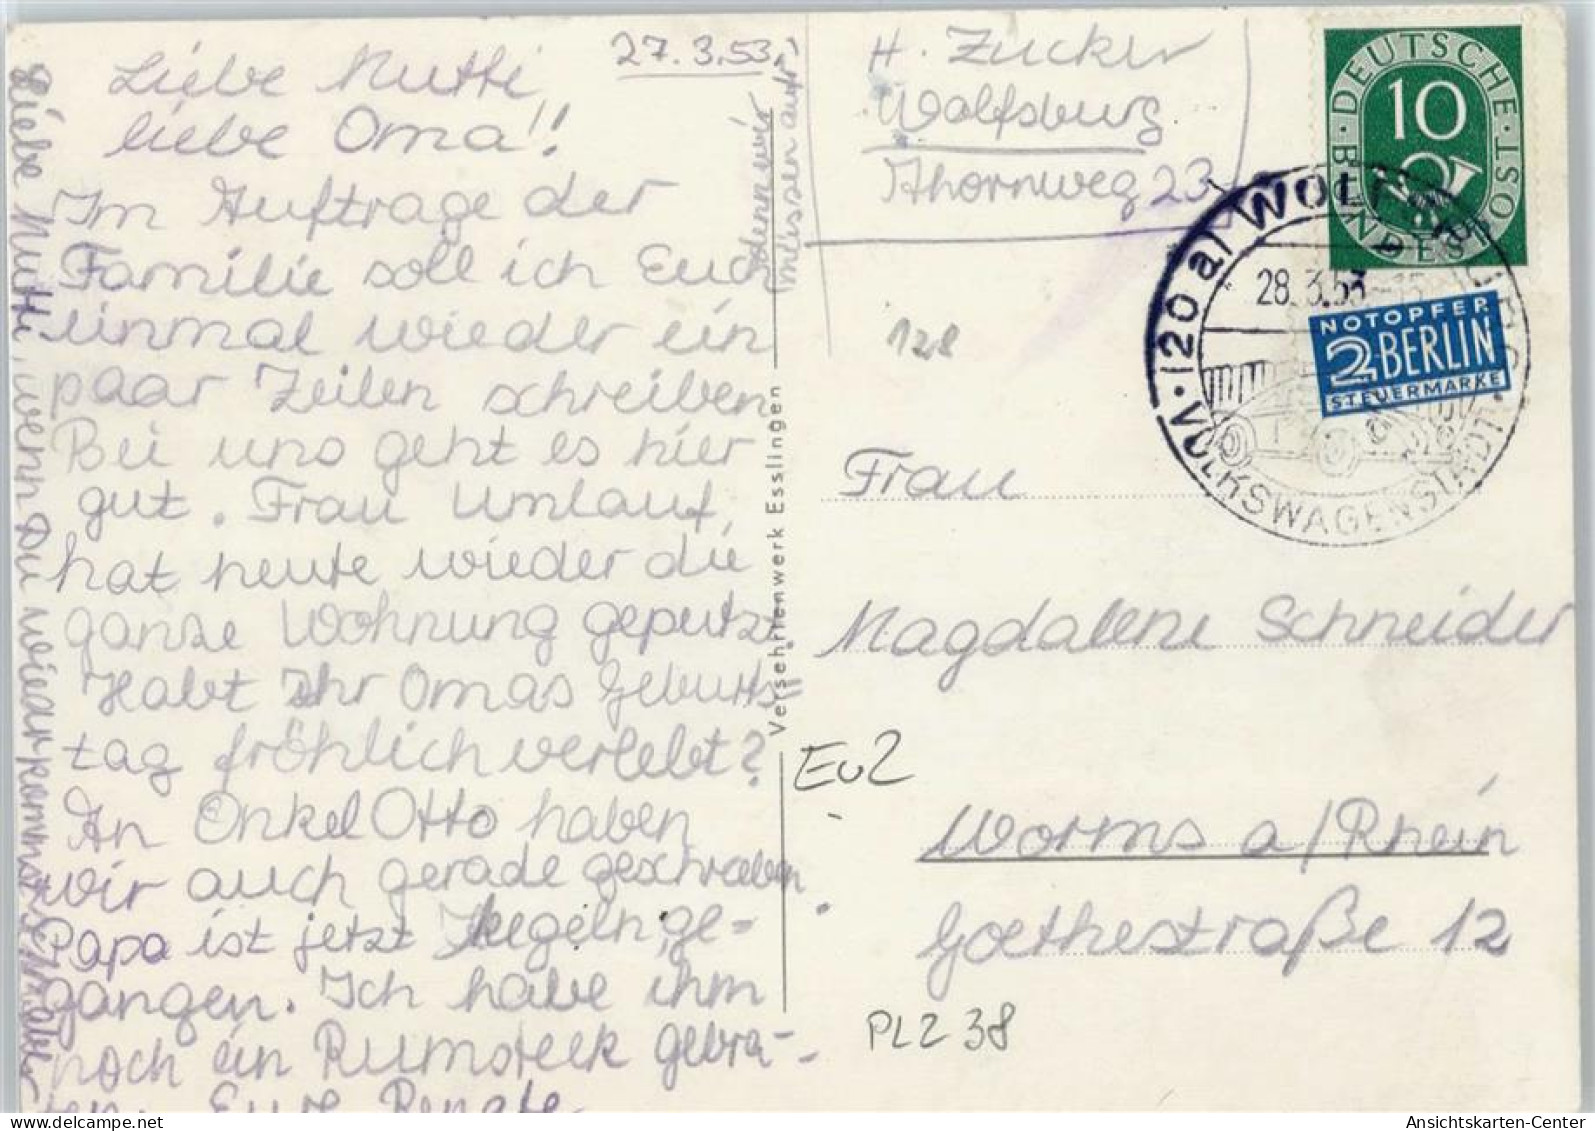 27.3.53.
Liebe Mutti
liebe Oma!!
Im Auftrage der
Familie soll ich Euch
einmal wieder ein
paar Zeilen schreiben
Bei uns geht es hier
gut. Frau Umlauf,
hat heute wieder die
ganze Wohnung geputzt
Habt Ihr Omas Geburts=
tag fröhlich verlebt?
An Onkel Otto haben
wir auch gerade geschrieben
Papa ist jetzt Kegeln ge=
gangen. Ich habe ihm
noch ein Rumsteck gebra-
ten. Eure Renate
Liebe Mutti, wenn Du wiederkommst
müssen wir
essen auf!
Versehrtenwerk Esslingen
H. Zucker
Wolfsburg
Ahornweg 23
128
DEUTSCHE BUNDESPOST
10
120a WOLFSBURG
28.3.53-15
VOLKSWAGENSTADT
NOTOPFER
2 BERLIN
STEUERMARKE
Frau
Magdalene Schneider
Worms a/Rhein
Goethestraße 12
EuZ
PLZ 38
AnsichtsKarten-Center